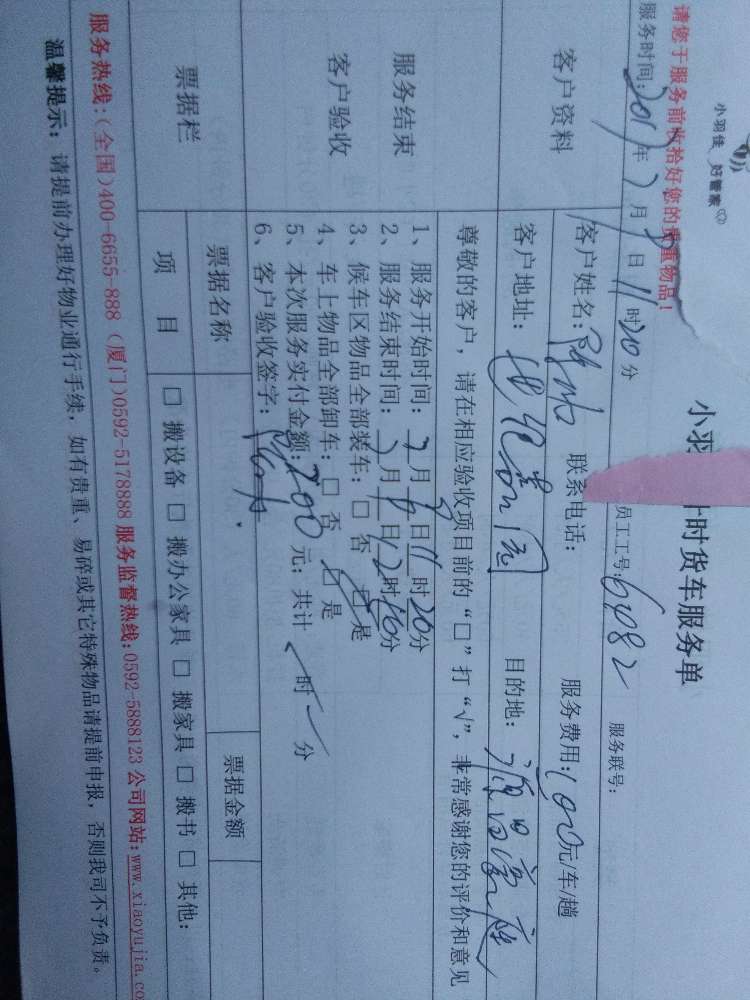 小羽佳 好管家
小羽 时货车服务单
请您于服务前收拾好您的贵重物品！
服务时间: 年 月 日 11 时 20 分 员工工号: 6082 服务联号:
客户资料
客户姓名: 联系电话: 服务费用: 100 元/车/趟
客户地址: 目的地:
尊敬的客户，请在相应验收项目前的“□”打“√”，非常感谢您的评价和意见
服务结束
客户验收
1、服务开始时间: 月 日 11 时 20 分
2、服务结束时间: 月 日 12 时 分
3、候车区物品全部装车: □ 否 □ 是
4、车上物品全部卸车: □ 否 □ 是
5、本次服务实付金额: 200 元; 共计 时 分
6、客户验收签字:
票据栏
票据名称 票据金额
项 目 □ 搬设备 □ 搬办公家具 □ 搬家具 □ 搬书 □ 其他:
服务热线:(全国)400-6655-888 (厦门)0592-5178888 服务监督热线:0592-5888123 公司网站:www.xiaoyujia.co
温馨提示: 请提前办理好物业通行手续，如有贵重、易碎或其它特殊物品请提前申报，否则我司不予负责。